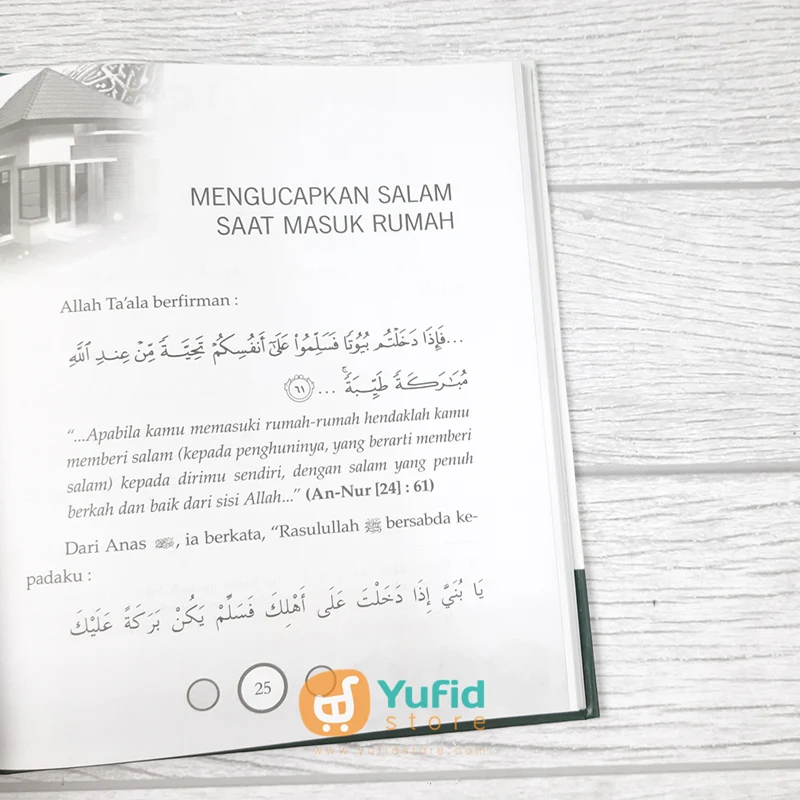 MENGUCAPKAN SALAM
SAAT MASUK RUMAH
Allah Ta'ala berfirman :
...فَإِذَا دَخَلْتُم بُيُوتًا فَسَلِّمُوا۟ عَلَىٰٓ أَنفُسِكُمْ تَحِيَّةً مِّنْ عِندِ ٱللَّهِ
مُبَٰرَكَةً طَيِّبَةً ۚ ... ٦١
"...Apabila kamu memasuki rumah-rumah hendaklah kamu
memberi salam (kepada penghuninya, yang berarti memberi
salam) kepada dirimu sendiri, dengan salam yang penuh
berkah dan baik dari sisi Allah..." (An-Nur [24] : 61)
Dari Anas, ia berkata, "Rasulullah ﷺ bersabda ke-
padaku :
يَا بُنَيَّ إِذَا دَخَلْتَ عَلَى أَهْلِكَ فَسَلِّمْ يَكُنْ بَرَكَةً عَلَيْكَ
25
Yufid
store
www.yufidstore.com